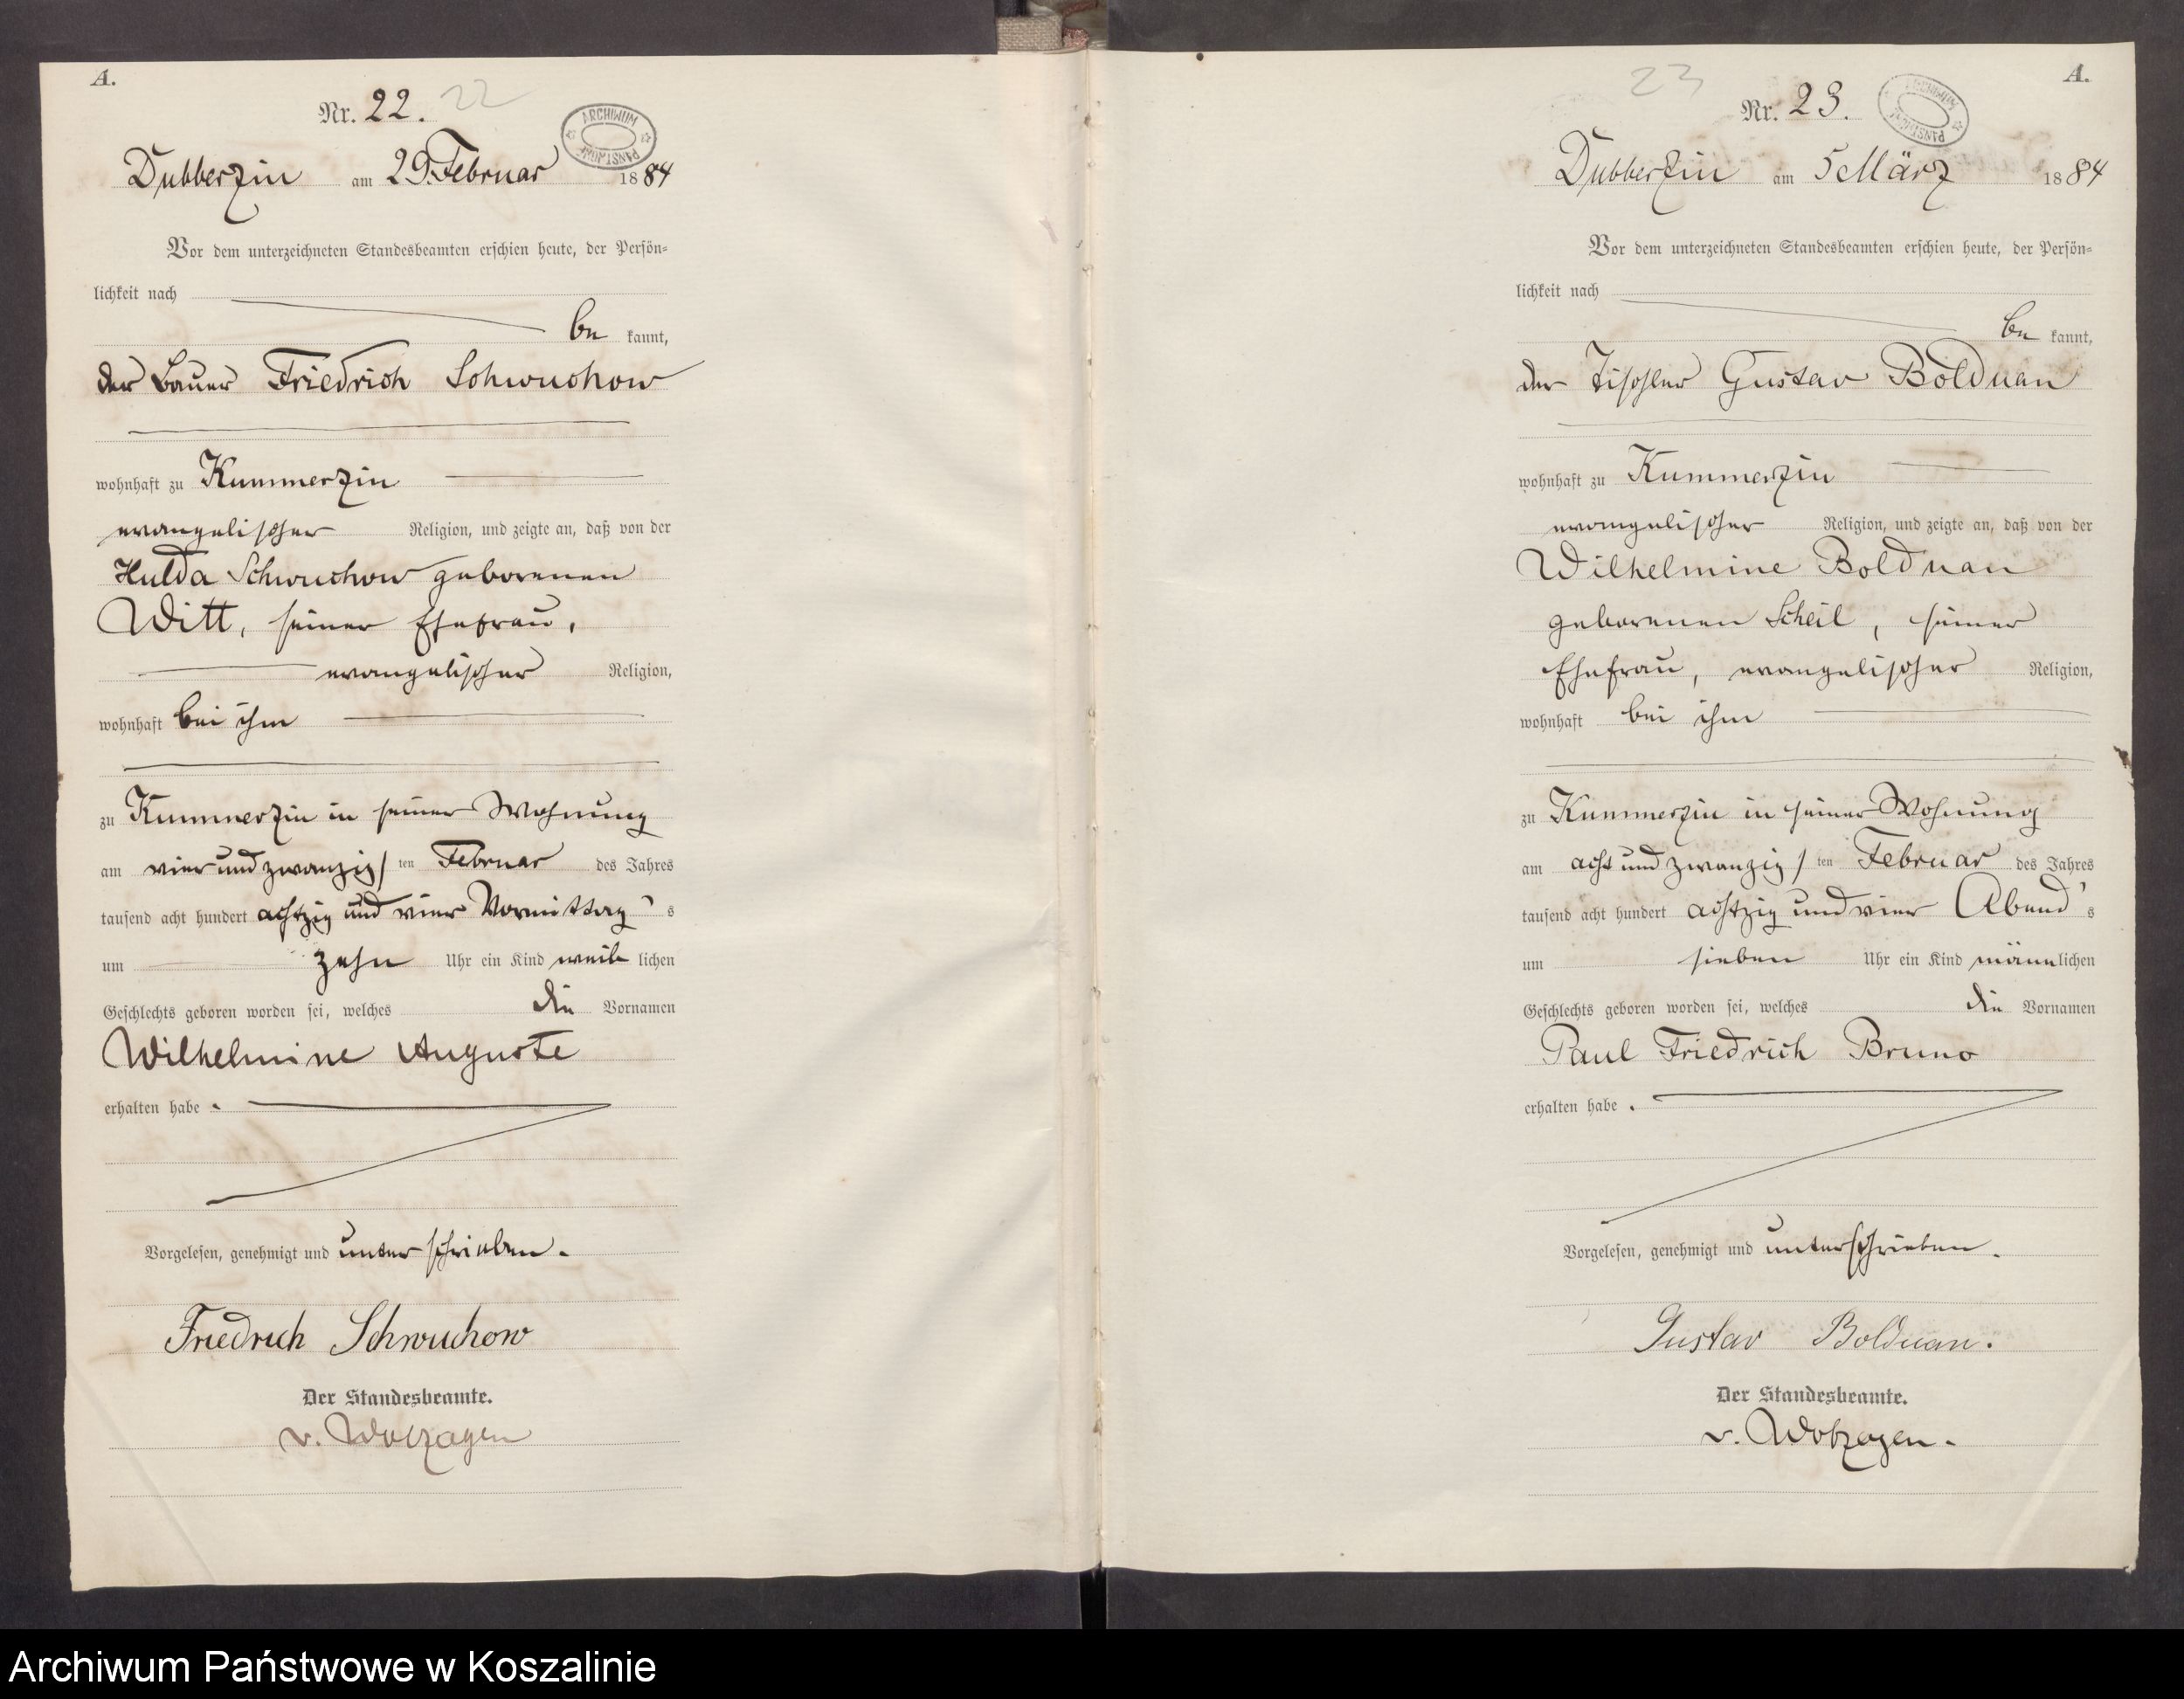 A.
Nr. 22. 22
ARCHIWUM PAŃSTWOWE
Dubberzin am 29. Februar 1884
Vor dem unterzeichneten Standesbeamten erschien heute, der Persön=
lichkeit nach
be kannt,
der Bauer Friedrich Schwuchow
wohnhaft zu Kummerzin
evangelischer Religion, und zeigte an, daß von der
Hulda Schwuchow geborenen
Witt, seiner Ehefrau,
evangelischer Religion,
wohnhaft bei ihm
zu Kummerzin in seiner Wohnung
am vier und zwanzig/ten Februar des Jahres
tausend acht hundert achtzig und vier Vormittag's
um zehn Uhr ein Kind weib lichen
Geschlechts geboren worden sei, welches die Vornamen
Wilhelmine Auguste
erhalten habe.
Vorgelesen, genehmigt und unterschrieben.
Friedrich Schwuchow
Der Standesbeamte.
v. Wolzogen
A.
23
Nr. 23.
ARCHIWUM PAŃSTWOWE
Dubberzin am 5 März 1884
Vor dem unterzeichneten Standesbeamten erschien heute, der Persön=
lichkeit nach
be kannt,
der Tischler Gustav Bolduan
wohnhaft zu Kummerzin
evangelischer Religion, und zeigte an, daß von der
Wilhelmine Bolduan
geborenen Scheil, seiner
Ehefrau, evangelischer Religion,
wohnhaft bei ihm
zu Kummerzin in seiner Wohnung
am acht und zwanzig/ten Februar des Jahres
tausend acht hundert achtzig und vier Abend's
um sieben Uhr ein Kind männlichen
Geschlechts geboren worden sei, welches die Vornamen
Paul Friedrich Bruno
erhalten habe.
Vorgelesen, genehmigt und unterschrieben.
Gustav Bolduan.
Der Standesbeamte.
v. Wolzogen.
Archiwum Państwowe w Koszalinie